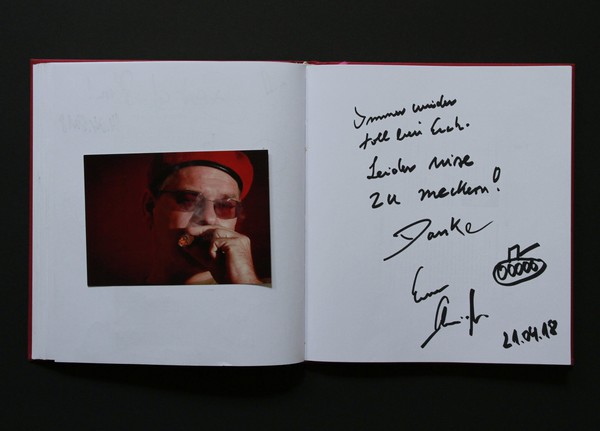 Immer wieder
toll bei Euch.
Leider nix
zu meckern!
Danke
21.04.18